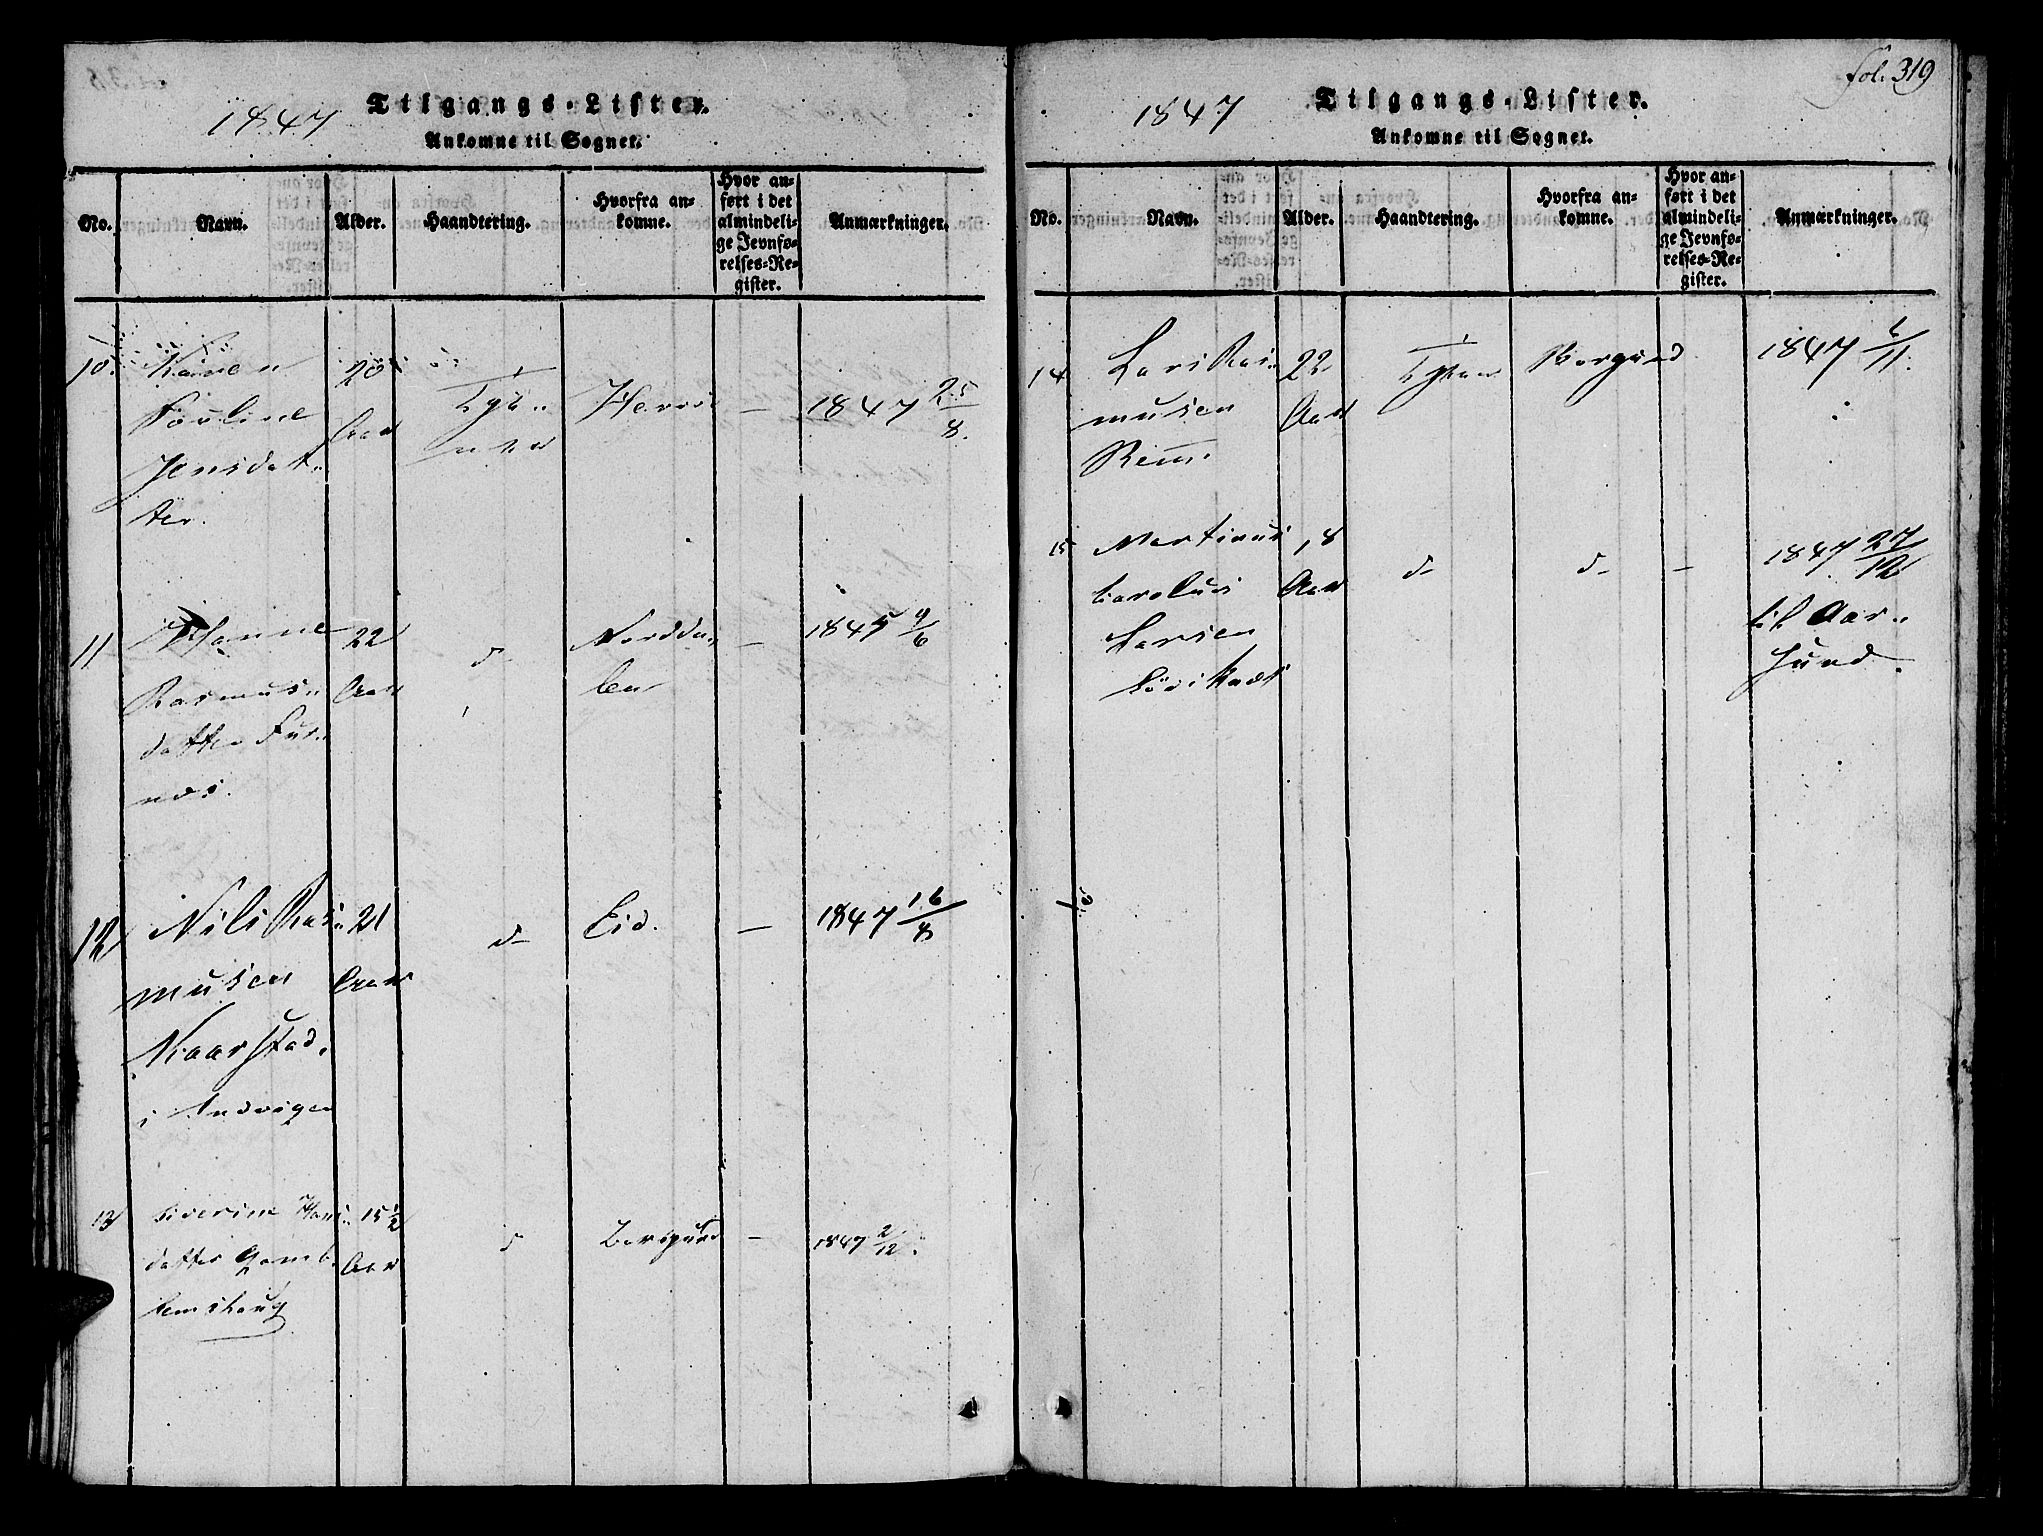 1847
Tilgangs-Lister.
Ankomne til Sognet.
No.
Navn.
Alder.
Haandtering.
Hvorfra an-
komne.
Hvor an-
ført i det
almindeli-
ge Jevnfø-
relses-Re-
gister.
Anmærkninger.
10.
20
Aar
Pouline
Jensdat-
ter.
Tje-
1847 25/8.
11
Hanne
Rasmus-
datter Fur-
nes.
22
Aar
d-
Nordda-
len
—
1845 4/6
12
Nils Ras-
musen
Kaarstad
i Indvigen
21
Aar
d-
Eid.
—
1847 16/8
13
Severine Hans-
datter Gamb-
lemshaug
15 1/2
Aar
d
Borgund
—
1847 2/12.
fol. 319
1847
Tilgangs-Lister.
Ankomne til Sognet.
No.
Navn.
Alder.
Haandtering.
Hvorfra an-
komne.
Hvor an-
ført i det
almindeli-
ge Jevnfø-
relses-Re-
gister.
Anmærkninger.
14
Lars Ras-
musen
22
Aar
Borgund
1847
15
Martinus
Carolus
Larsen
18
Aar
d-
d-
—
1847 27/12
til Aar-
sund.